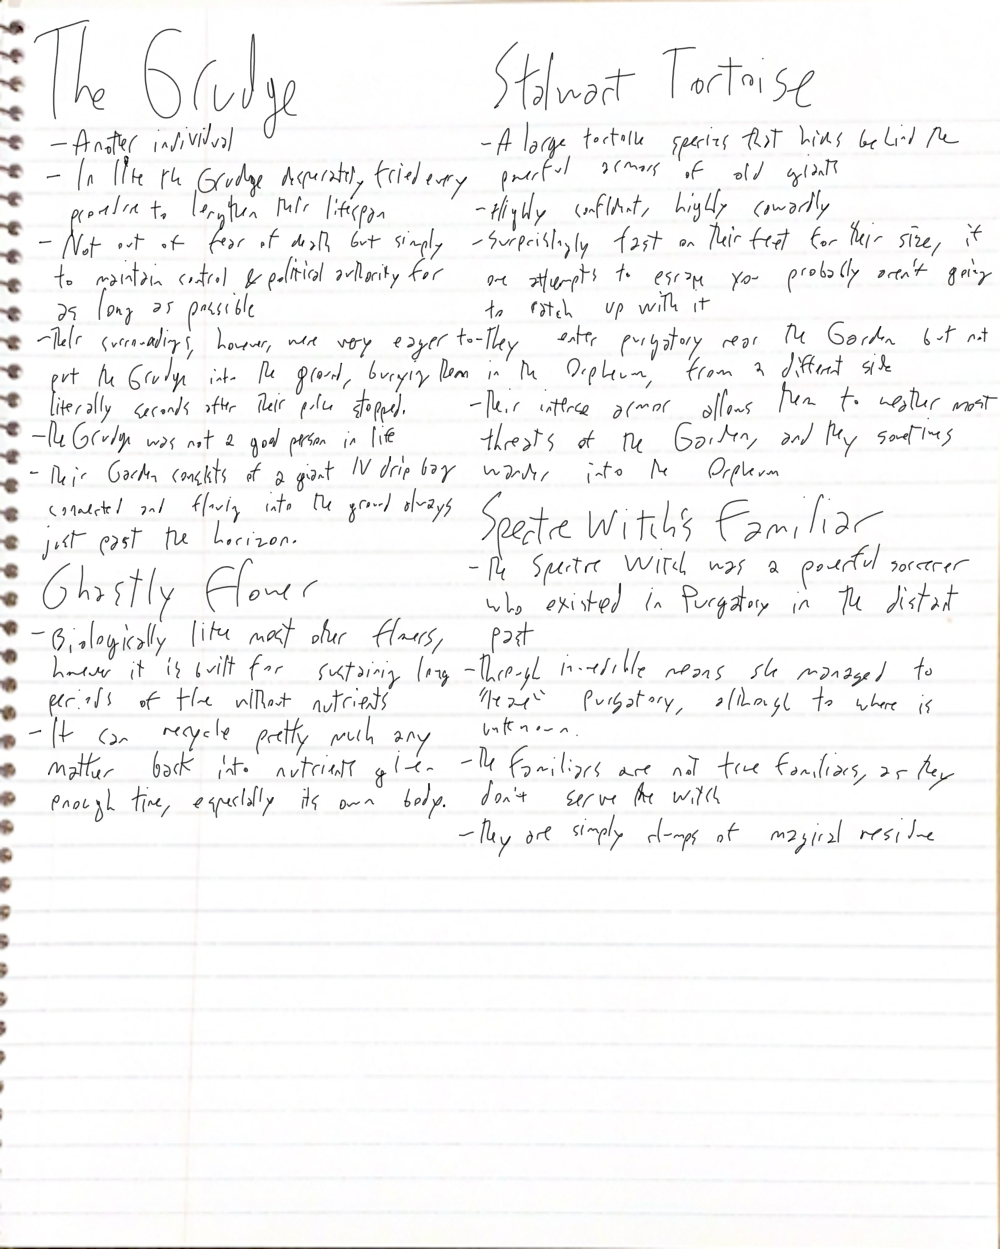 The Grudge
- Another individual
- In life the Grudge desperately tried every
procedure to lengthen their lifespan
- Not out of fear of death but simply
to maintain control & political authority for
as long as possible
- Their surroundings, however, were very eager to
put the Grudge into the ground, burying them
literally seconds after their pulse stopped.
- The Grudge was not a good person in life
- Their Garden consists of a giant IV drip bag
connected and flowing into the ground always
just past the horizon.
Ghastly Flower
- Biologically like most other flowers,
however it is built for sustaining long
periods of time without nutrients
- It can recycle pretty much any
matter back into nutrients given
enough time, especially its own body.
Stalwart Tortoise
- A large tortoise species that hides behind the
powerful armors of old giants
- Highly confident, highly cowardly
- Surprisingly fast on their feet for their size, if
one attempts to escape you probably aren't going
to catch up with it
- They enter purgatory near the Garden but not
in the Orpheum, from a different side
- Their intense armor allows them to weather most
threats of the Garden, and they sometimes
wander into the Orpheum
Spectre Witch's Familiar
- The Spectre Witch was a powerful sorcerer
who existed in Purgatory in the distant
past
- Through incredible means she managed to
"leave" Purgatory, although to where is
unknown.
- The familiars are not true familiars, as they
don't serve the witch
- They are simply clumps of magical residue